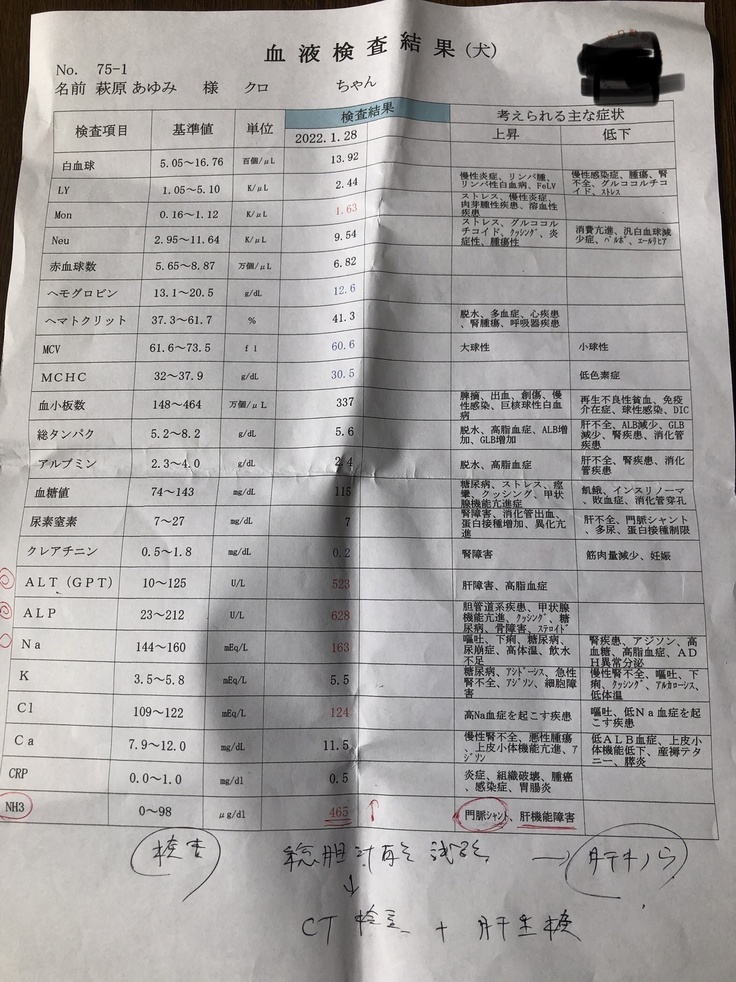 血液検査結果(犬)
No. 75-1
名前 萩原 あゆみ 様 クロ ちゃん
検査項目 基準値 単位 検査結果 考えられる主な症状
2022.1.28 上昇 低下
白血球 5.05〜16.76 百個/μL 13.92
LY 1.05〜5.10 K/μL 2.44 慢性炎症、リンパ腫、リンパ性白血病、FeLV 慢性感染症、腫瘍、腎不全、グルココルチコイド、ストレス
Mon 0.16〜1.12 K/μL 1.63 ストレス、慢性炎症、肉芽腫性疾患、溶血性疾患
Neu 2.95〜11.64 K/μL 9.54 ストレス、グルココルチコイド、クッシング、炎症性、腫瘍性 消費亢進、汎白血球減少症、パルボ、エールリヒア
赤血球数 5.65〜8.87 万個/μL 6.82
ヘモグロビン 13.1〜20.5 g/dL 12.6
ヘマトクリット 37.3〜61.7 % 41.3 脱水、多血症、心疾患、腎腫瘍、呼吸器疾患
MCV 61.6〜73.5 fl 60.6 大球性 小球性
MCHC 32〜37.9 g/dL 30.5 低色素症
血小板数 148〜464 万個/μL 337 脾摘、出血、創傷、慢性感染、巨核球性白血病 再生不良性貧血、免疫介在症、球性感染、DIC
総タンパク 5.2〜8.2 g/dL 5.6 脱水、高脂血症、ALB増加、GLB増加 肝不全、ALB減少、GLB減少、腎疾患、消化管疾患
アルブミン 2.3〜4.0 g/dL 2.4 脱水、高脂血症 肝不全、腎疾患、消化管疾患
血糖値 74〜143 mg/dL 115 糖尿病、ストレス、痙攣、クッシング、甲状腺機能亢進症 飢餓、インスリノーマ、敗血症、消化管穿孔
尿素窒素 7〜27 mg/dL 7 腎障害、消化管出血、蛋白接種増加、異化亢進 肝不全、門脈シャント、多尿、蛋白接種制限
クレアチニン 0.5〜1.8 mg/dL 0.2 腎障害 筋肉量減少、妊娠
ALT(GPT) 10〜125 U/L 523 肝障害、高脂血症
ALP 23〜212 U/L 628 胆管道系疾患、甲状腺機能亢進、クッシング、糖尿病、骨障害、ステロイド
Na 144〜160 mEq/L 163 嘔吐、下痢、糖尿病、尿崩症、高体温、飲水不足 腎疾患、アジソン、高血糖、高脂血症、ADH異常分泌
K 3.5〜5.8 mEq/L 5.5 糖尿病、アシドーシス、急性腎不全、アジソン、細胞障害 慢性腎不全、嘔吐、下痢、クッシング、アルカローシス、低体温
Cl 109〜122 mEq/L 124 高Na血症を起こす疾患 嘔吐、低Na血症を起こす疾患
Ca 7.9〜12.0 mg/dL 11.5 慢性腎不全、悪性腫瘍、上皮小体機能亢進、アジソン 低ALB血症、上皮小体機能低下、産褥テタニー、膵炎
CRP 0.0〜1.0 mg/dl 0.5 炎症、組織破壊、腫瘍、感染症、胃腸炎
NH3 0〜98 μg/dl 465 ↑ 門脈シャント、肝機能障害
検査 総胆汁酸 試験 →
↓
CT 検査 + 肝生検